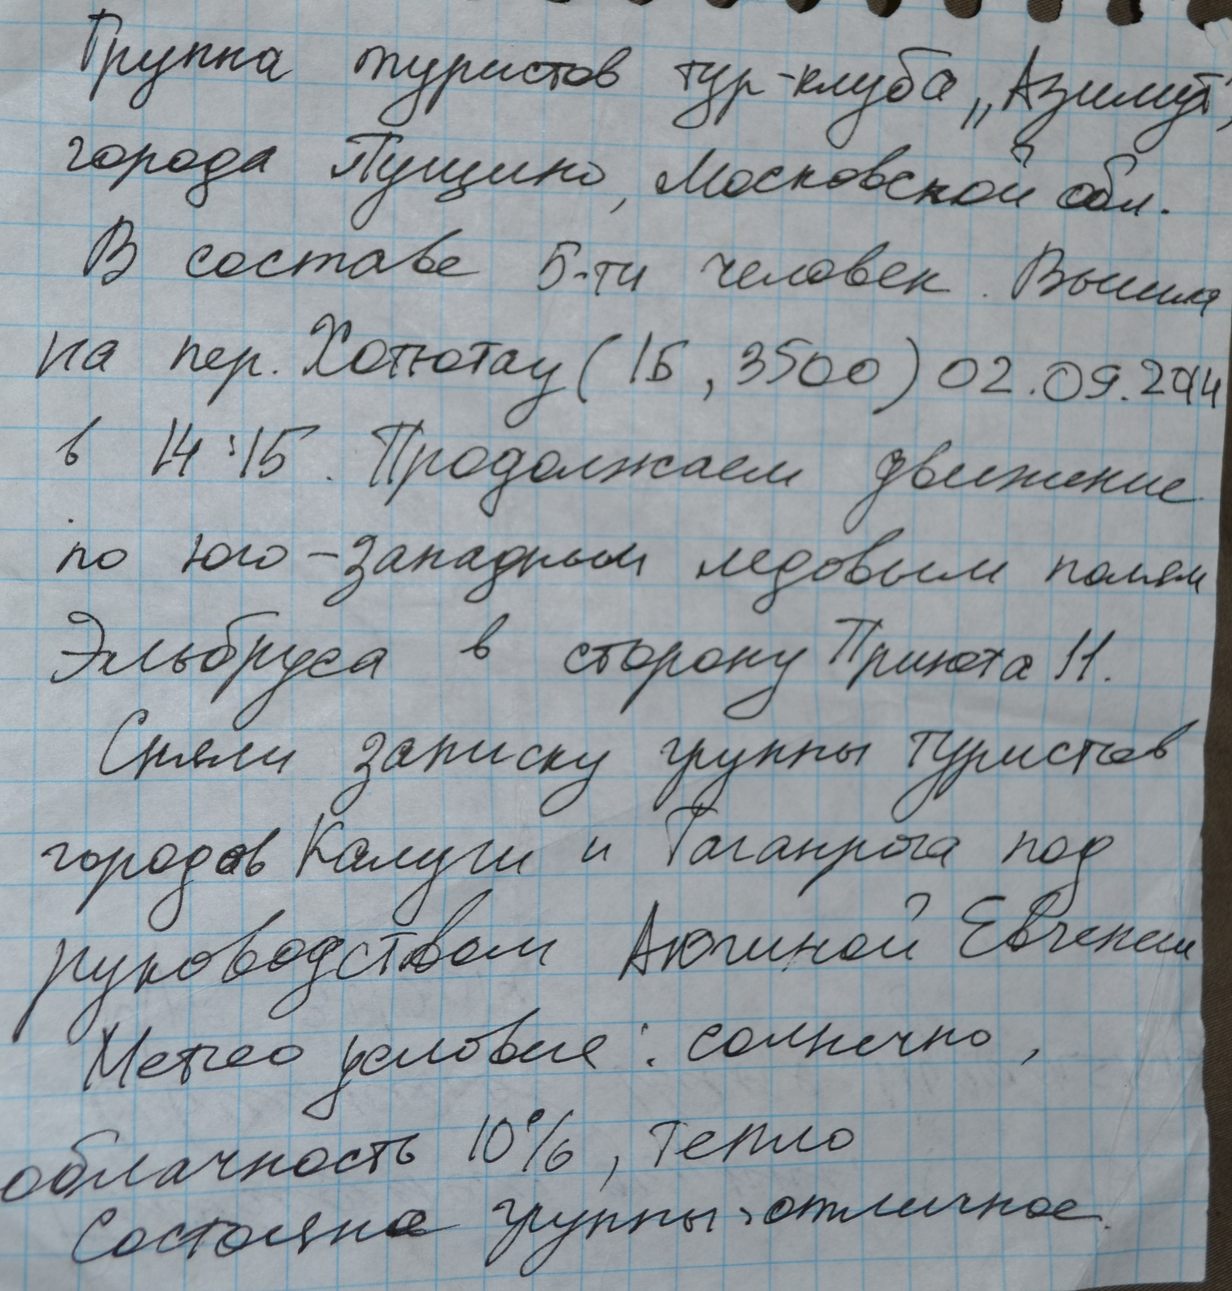 Группа туристов тур-клуба „Азимут"
города Пущино, Московской обл.
В составе 5-ти человек. Вышла
на пер. Хотютау (1Б, 3500) 02.09.2014
в 14:15. Продолжаем движение
по юго-западным ледовым полям
Эльбруса в сторону Приюта 11.
Сняли записку группы туристов
городов Калуги и Таганрога под
руководством Аючиной Евгении
Метео условие: солнечно,
облачность 10%, тепло
Состояние группы - отличное.